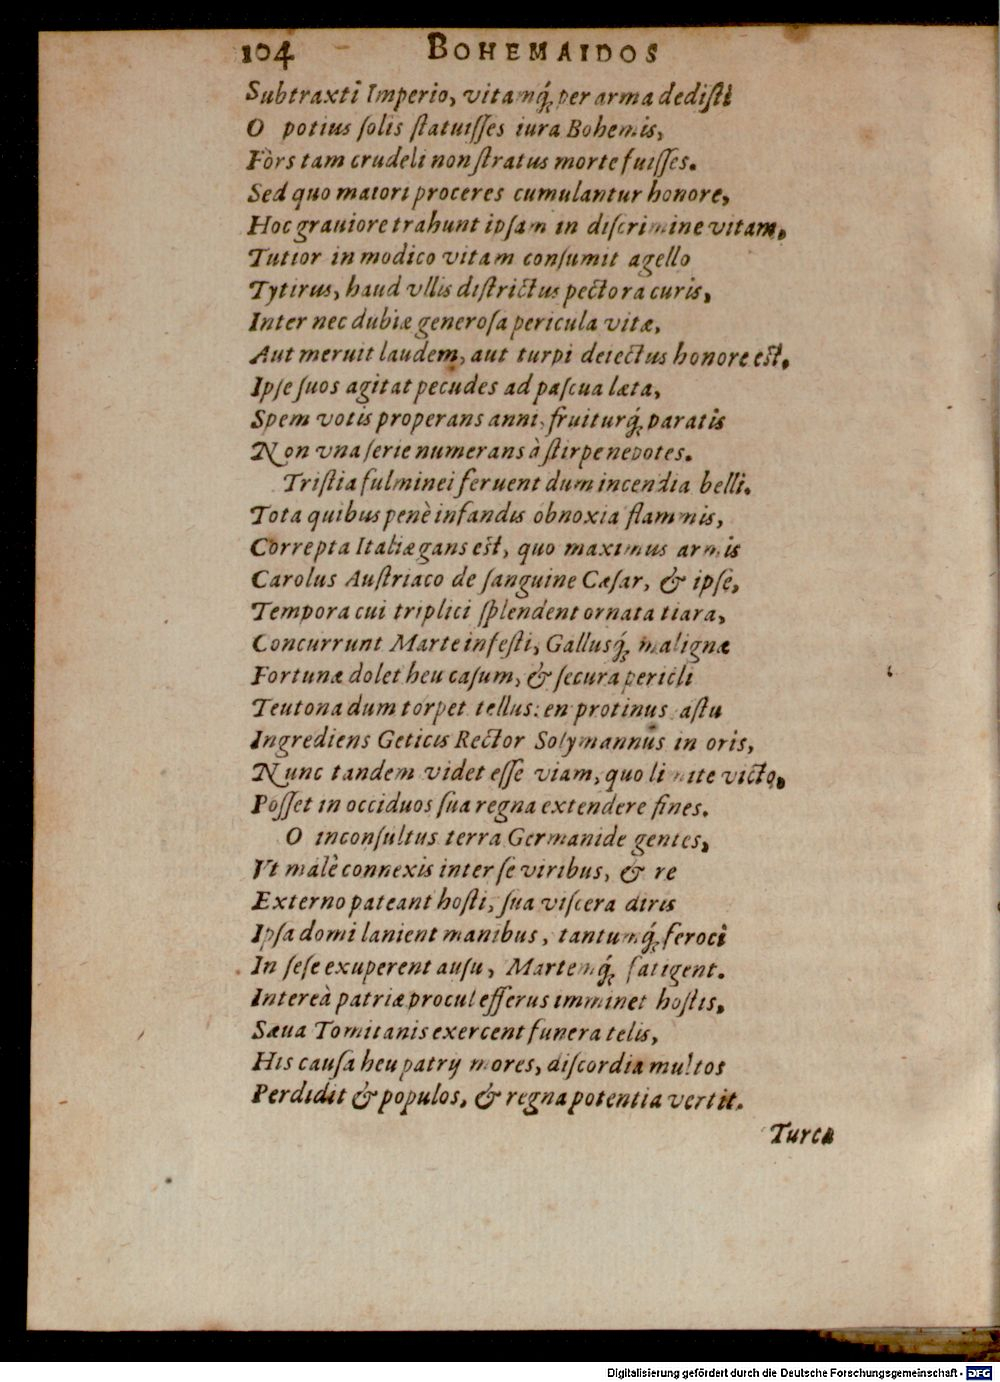 104 BOHEMAIDOS
Subtraxti Imperio, vitamq́; per arma dediſti
O potius ſolis ſtatuiſſes iura Bohemis,
Fors tam crudeli non ſtratus morte fuiſſes.
Sed quo maiori proceres cumulantur honore,
Hoc grauiore trahunt ipſam in diſcrimine vitam.
Tutior in modico vitam conſumit agello
Tytirus, haud vllis diſtrictus pectora curis,
Inter nec dubiæ generoſa pericula vitæ,
Aut meruit laudem, aut turpi deiectus honore eſt.
Ipſe ſuos agitat pecudes ad paſcua læta,
Spem votis properans anni, fruiturq́; paratis
Non vna ſerie numerans à ſtirpe nepotes.
Triſtia fulminei feruent dum incendia belli.
Tota quibus penè infandis obnoxia flammis,
Correpta Italiæ gans eſt, quo maximus armis
Carolus Auſtriaco de ſanguine Cæſar, & ipſe,
Tempora cui triplici ſplendent ornata tiara,
Concurrunt Marte infeſti, Gallusq́; malignæ
Fortunæ dolet heu caſum, & ſecura pericli
Teutona dum torpet tellus: en protinus aſtu
Ingrediens Geticis Rector Solymannus in oris,
Nunc tandem videt eſſe viam, quo limite victo,
Poſſet in occiduos ſua regna extendere fines.
O inconſultus terra Germanide gentes,
Vt malè connexis inter ſe viribus, & re
Externo pateant hoſti, ſua viſcera diris
Ipſa domi lanient manibus, tantumq́; feroci
In ſeſe exuperent auſu, Martemq́; fatigent.
Intereà patriæ procul efferus imminet hoſtis,
Sæua Tomitanis exercent funera telis,
His cauſa heu patrij mores, diſcordia multos
Perdidit & populos, & regna potentia vertit.
Turca
Digitalisierung gefördert durch die Deutsche Forschungsgemeinschaft - DFG